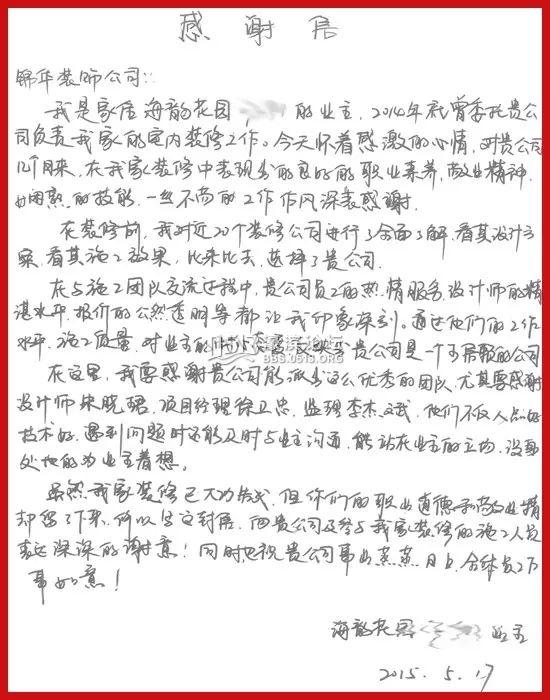 感谢信
锦华装饰公司:
我是家居海韵花园 的业主,2014年就曾委托贵公
司负责我家的室内装修工作。今天怀着感激的心情,对贵公司
几个月来,在我家装修中表现出的良好的职业素养,敬业精神,
娴熟的技能,一丝不苟的工作作风深表感谢。
在装修前,我对近20个装修公司进行了全面了解,看其设计方
案,看其施工效果,比来比去,选择了贵公司。
在与施工团队交流过程中,贵公司员工的热情服务,设计师的精
湛水平,报价的公然透明等都让我印象深刻。通过他们的工作
水平,施工质量,对业主的 贵公司是一个 的公司
BBS.0513.ORG
在这里,我要感谢贵公司能派出这么优秀的团队,尤其要感谢
设计师朱晓珺,项目经理徐卫忠,监理李杰斌,他们不仅人品好
技术好,遇到问题时还能及时与业主沟通,能站在业主的立场,设身
处地的为业主着想。
虽然我家装修已大功告成,但你们的职业道德和敬业精
却留了下来,所以写这封信,向贵公司及参与我家装修的施工人员
表达深深的谢意!同时也祝贵公司事业蒸蒸日上,全体员工万
事如意!
海韵花园 业主
2015.5.17